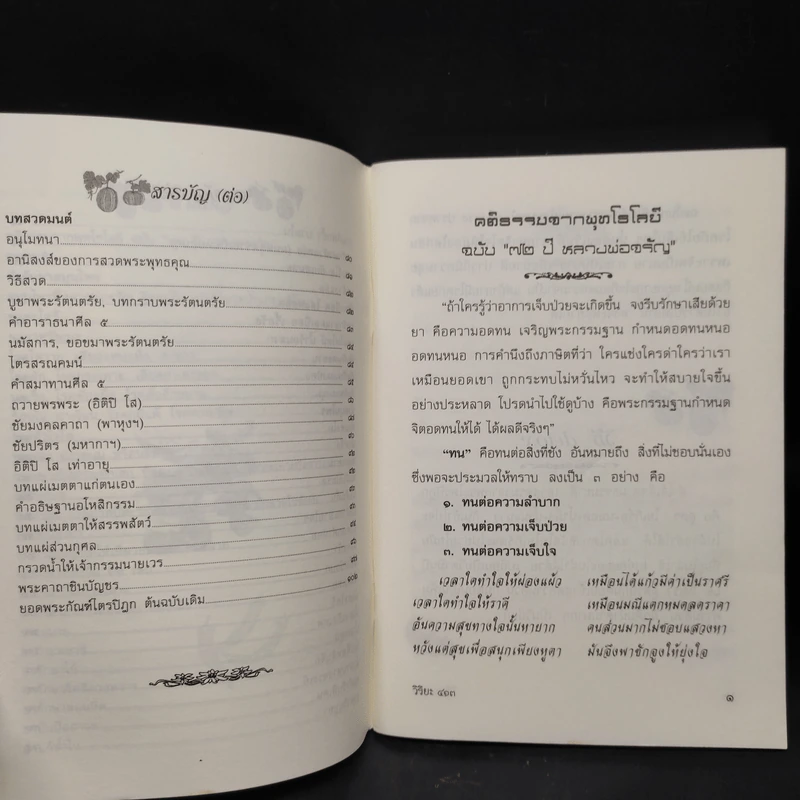 สารบัญ (ต่อ)
บทสวดมนต์
อนุโมทนา
อานิสงส์ของการสวดพระพุทธคุณ
วิธีสวด
บูชาพระรัตนตรัย, บทกราบพระรัตนตรัย
คำอาราธนาศีล ๕
นมัสการ, ขอขมาพระรัตนตรัย
ไตรสรณคมน์
คำสมาทานศีล ๕
ถวายพรพระ (อิติปิ โส)
ชัยมงคลคาถา (พาหุงฯ)
ชัยปริตร (มหากาฯ)
อิติปิ โส เท่าอายุ
บทแผ่เมตตาแก่ตนเอง
คำอธิษฐานอโหสิกรรม
บทแผ่เมตตาให้สรรพสัตว์
บทแผ่ส่วนกุศล
กรวดน้ำให้เจ้ากรรมนายเวร
พระคาถาชินบัญชร
ยอดพระกัณฑ์ไตรปิฎก ต้นฉบับเดิม
คติธรรมจากพุทโธโลยี
ฉบับ "๗๒ ปี หลวงพ่อจรัญ"
"ถ้าใครรู้ว่าอาการเจ็บป่วยจะเกิดขึ้น จงรีบรักษาเสียด้วย
ยา คือความอดทน เจริญพระกรรมฐาน กำหนดอดทนหนอ
อดทนหนอ การคำนึงถึงภาษิตที่ว่า ใครแช่งใครด่าใครว่าเรา
เหมือนยอดเขา ถูกกระทบไม่หวั่นไหว จะทำให้สบายใจขึ้น
อย่างประหลาด โปรดนำไปใช้ดูบ้าง คือพระกรรมฐานกำหนด
จิตอดทนให้ได้ ได้ผลดีจริงๆ"
"ทน" คือทนต่อสิ่งที่ชัง อันหมายถึง สิ่งที่ไม่ชอบนั่นเอง
ซึ่งพอจะประมวลให้ทราบ ลงเป็น ๓ อย่าง คือ
๑. ทนต่อความลำบาก
๒. ทนต่อความเจ็บป่วย
๓. ทนต่อความเจ็บใจ
เวลาใดทำใจให้ผ่องแผ้ว เหมือนได้แก้วมีค่าเป็นราศรี
เวลาใดทำใจให้ราคี เหมือนมณีแตกหมดลดราคา
อันความสุขทางใจนั้นหายาก คนส่วนมากไม่ชอบแสวงหา
หวังแต่สุขเพื่อสนุกเพียงหูตา มันจึงพาชักจูงให้ยุ่งใจ
วิริยะ ๔๖๓
๑